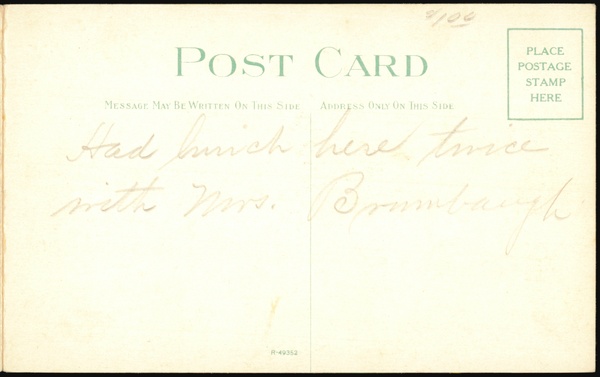 $1.00
POST CARD
PLACE
POSTAGE
STAMP
HERE
MESSAGE MAY BE WRITTEN ON THIS SIDE
ADDRESS ONLY ON THIS SIDE
Had lunch here twice
with Mrs. Brumbaugh
R-49352